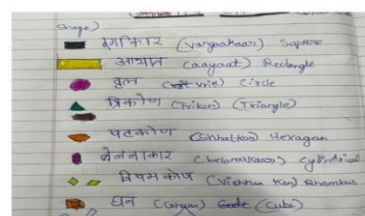 Shape)
वर्गाकार (vargaakaar) Square
आयात (aayaat) Rectangle
वृत (vrit) Circle
त्रिकोण (Trikon) (Triangle)
षटकोण Hexagan
बेलनाकार (belanakaar) Cylindrical
विषमकोण (Vishum Kon) Rhombus
घन (Cube)